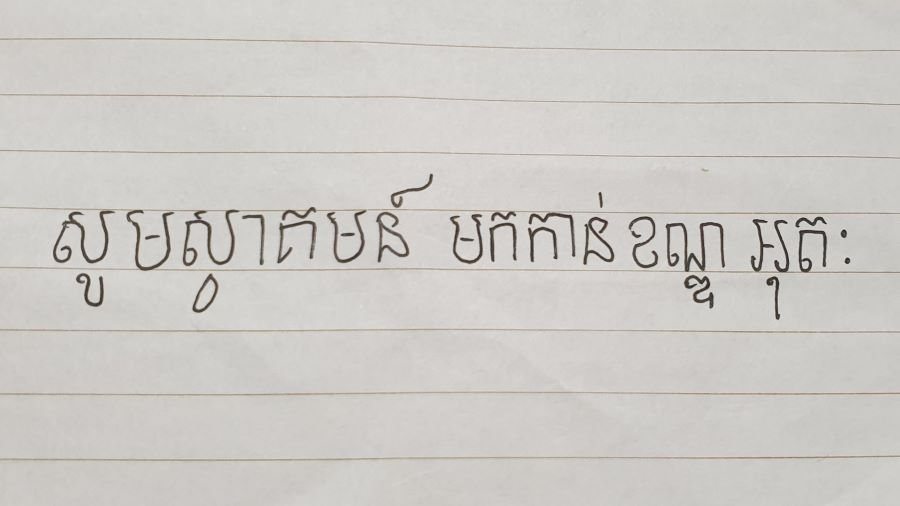 សូមស្វាគមន៍ មកកាន់ខណ្ឌ អុតៈ